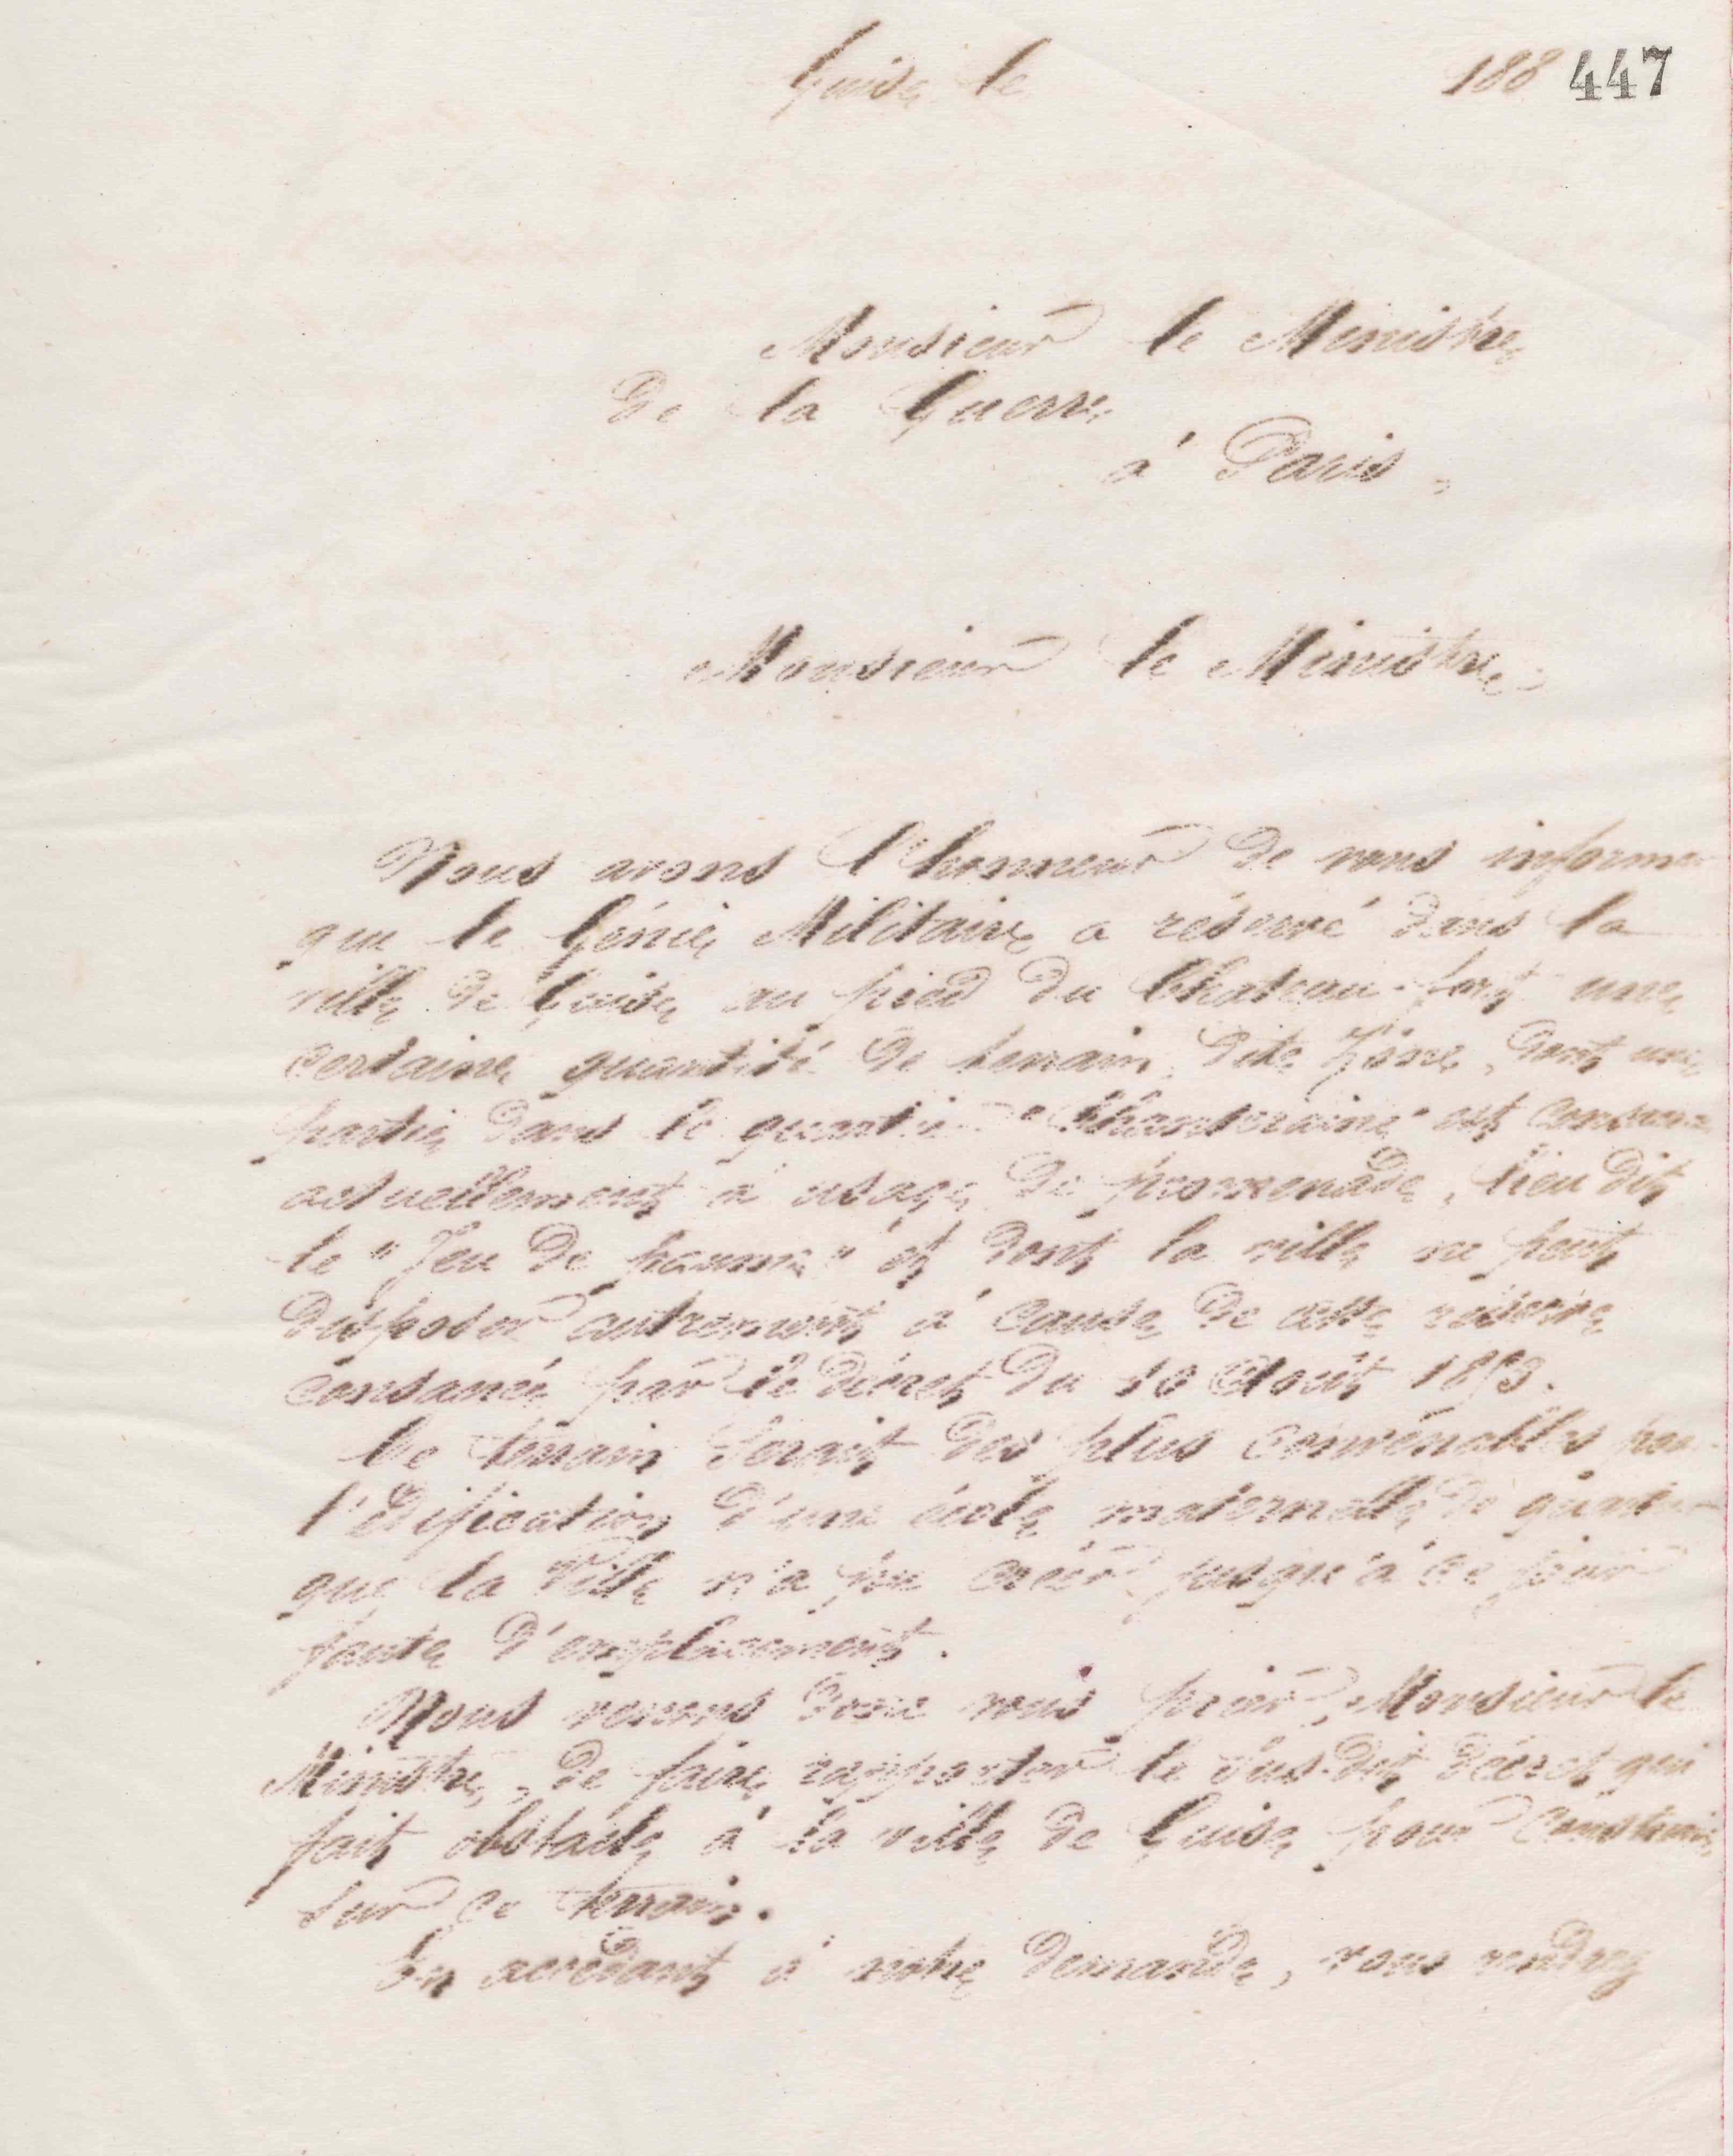 Guise le 188 447
Monsieur le Ministre
de la Guerre
à Paris.
Monsieur le Ministre,
Nous avons l'honneur de vous informer
que le Génie Militaire a réservé dans la
ville de Guise au pied du Chateau-fort une
certaine quantité de terrain dite Zône, dont une
partie dans le quartier "Chanteraine" est
actuellement à usage de promenade, lieu dit
le "Jeu de paume" et dont la ville ne peut
disposer autrement à cause de cette réserve
consacrée par le décret du 10 Août 1853.
Ce terrain serait des plus convenables pour
l'édification d'une école maternelle de quartier
que la Ville n'a pu créer jusqu'à ce jour
faute d'emplacement.
Nous venons donc vous prier, Monsieur le
Ministre, de faire rapporter le sus-dit décret qui
fait obstacle à la ville de Guise pour construire
sur ce terrain.
En accédant à notre demande, vous rendrez